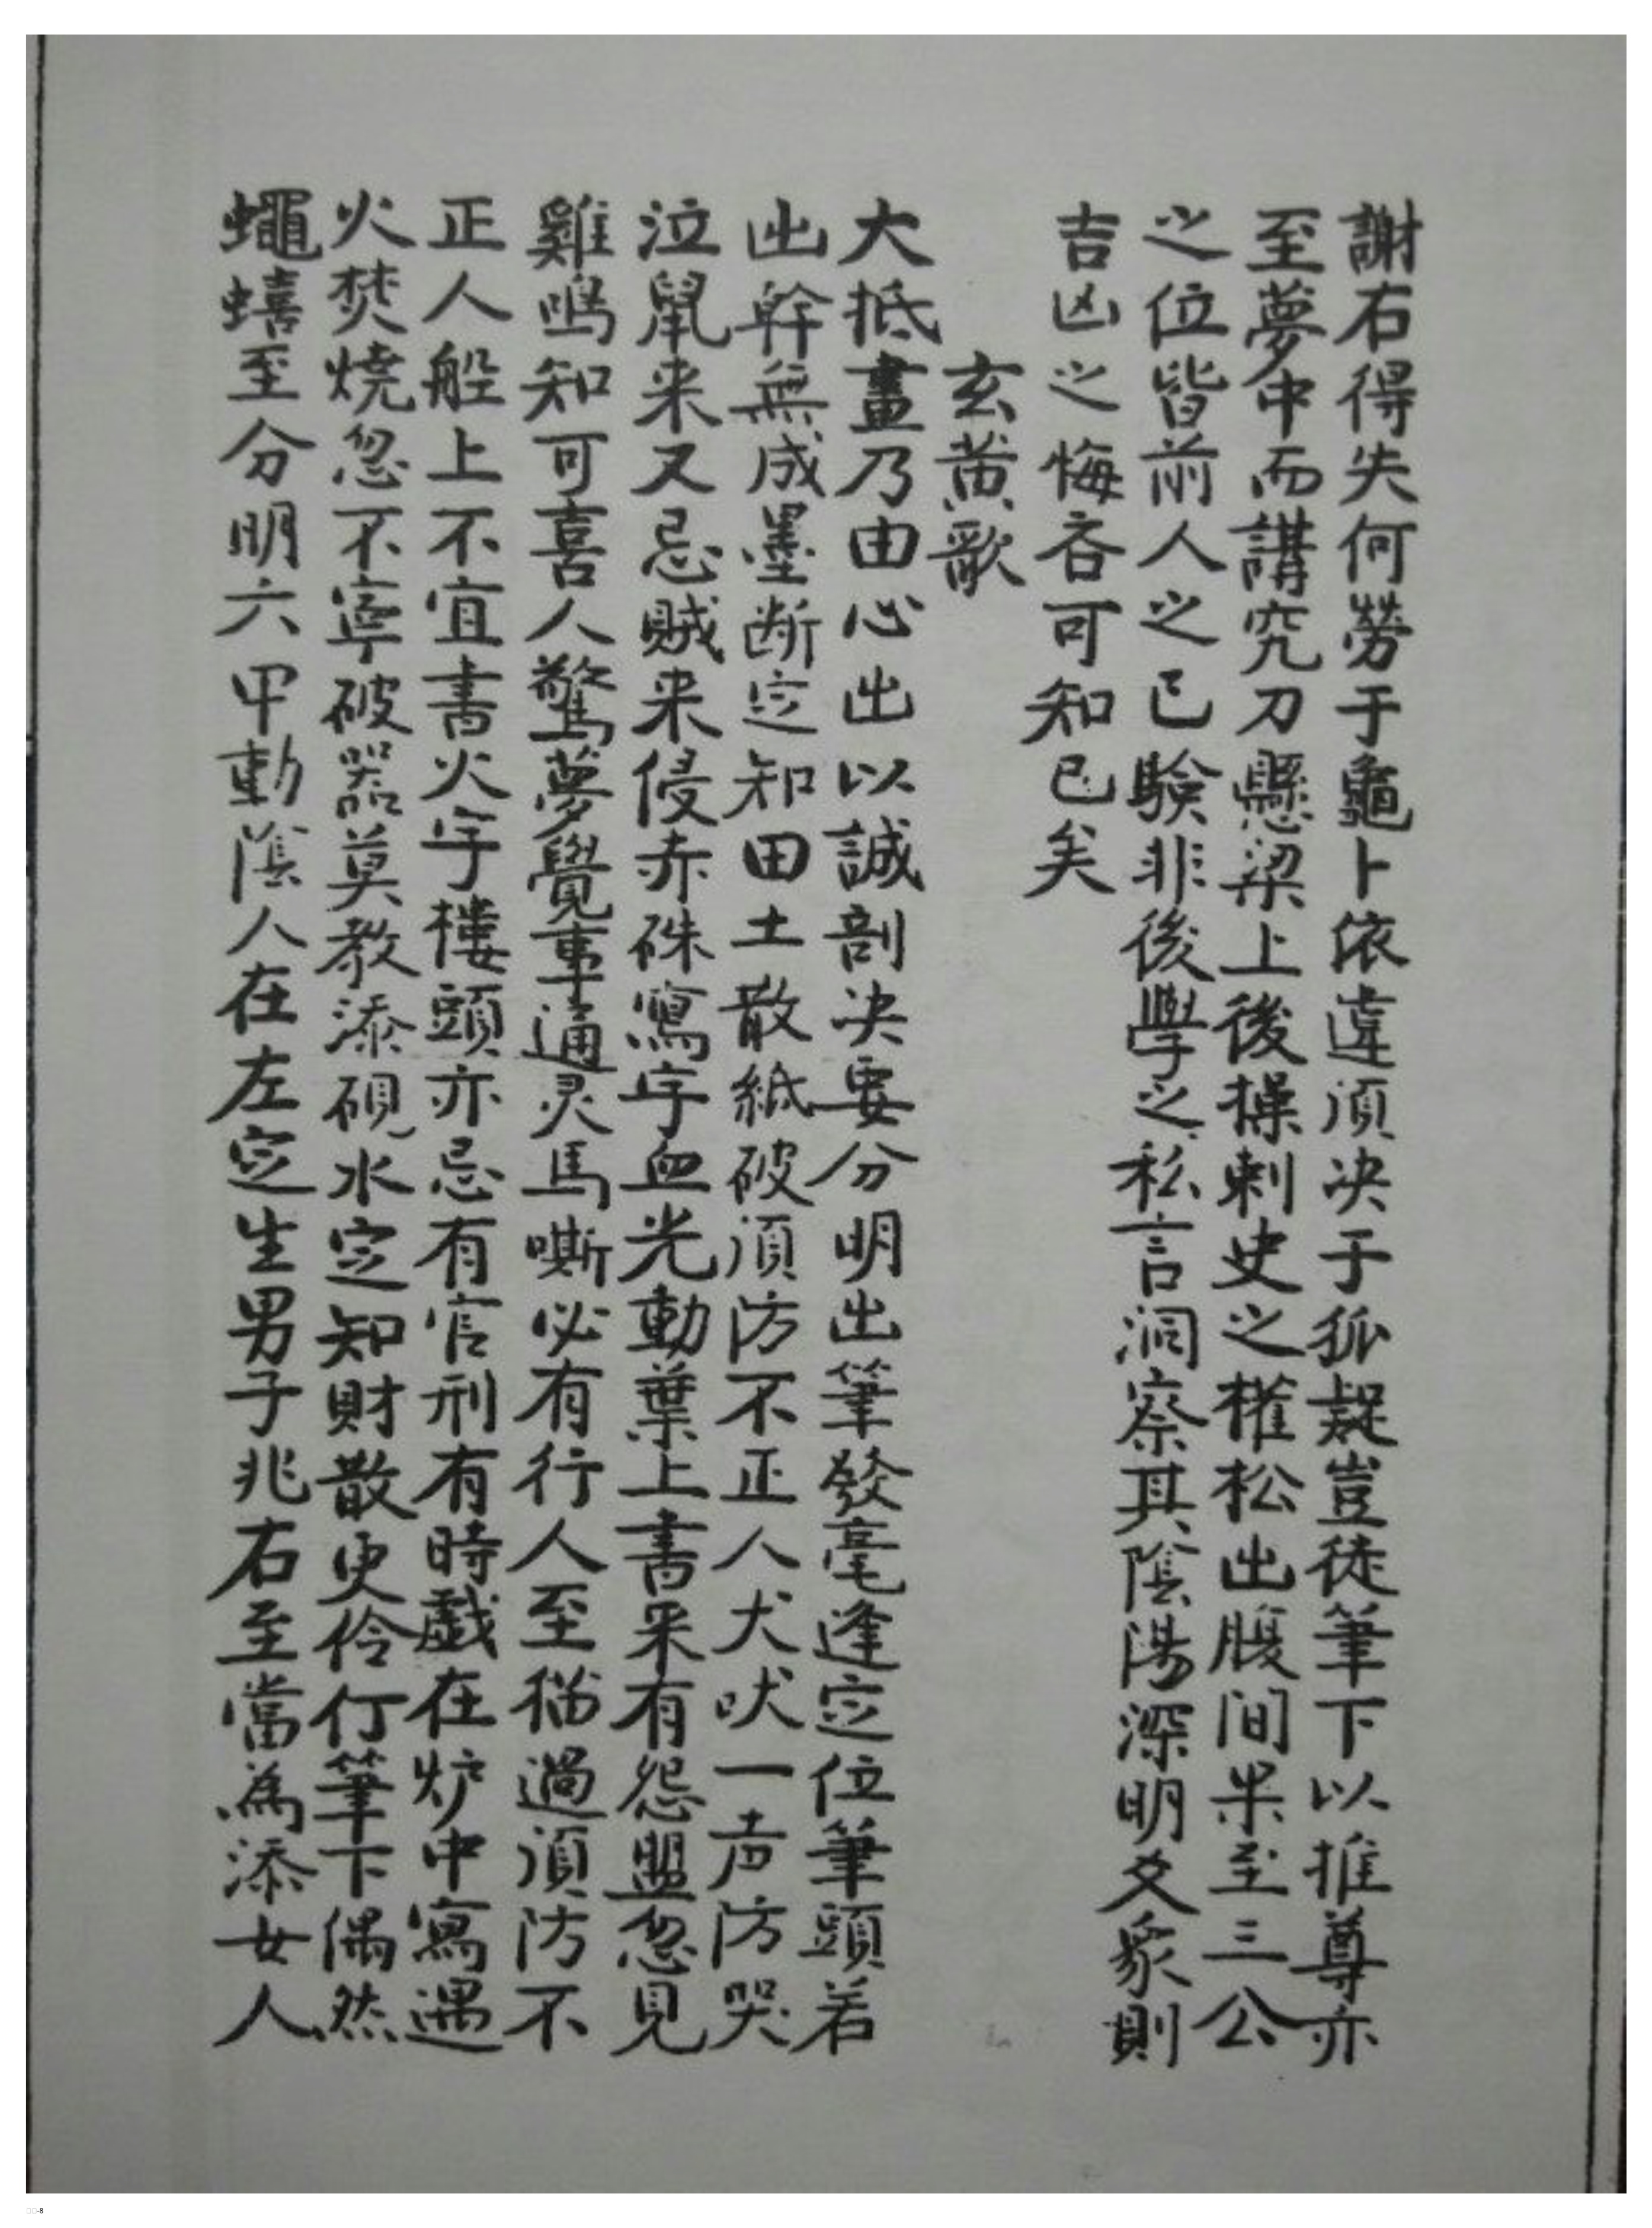 謝石得失何勞于龜卜依違須决于狐疑豈徒筆下以推尊亦
至夢中而講究刀懸梁上後操刺史之權松出腹间果至三公
之位皆前人之已驗非後學之私言洞察其陰陽深明爻象則
吉凶之悔吝可知已矣
玄黄歌
大抵畫乃由心出以誠剖决要分明出筆發毫逢定位筆頭若
出幹無成墨断定知田土散紙破須防不正人犬吠一声防哭
泣鼠来又忌贼来侵赤硃寫字血光動葉上書来有怨盟忽見
雞鳴知可喜人驚夢覺事通灵馬嘶必有行人至猫過須防不
正人船上不宜書火字樓頭亦忌有官刑有時戲在炉中寫遇
火焚燒忽不寧破器莫教添硯水定知財散更伶仃筆下偶然
蠅蟢至分明六甲動陰人在左定生男子兆右至當為添女人